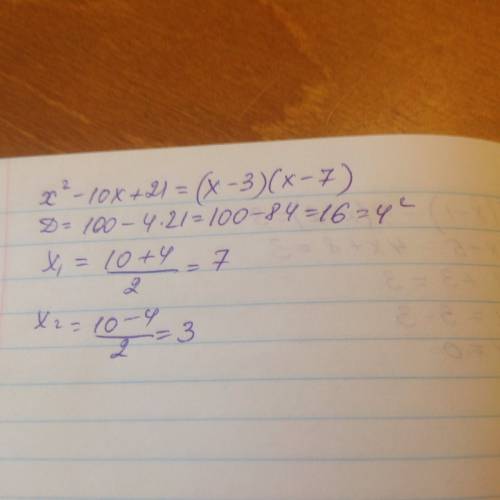 x² - 10x + 21 = (x - 3)(x - 7)
D = 100 - 4 · 21 = 100 - 84 = 16 = 4²
x₁ = (10 + 4)/2 = 7
x₂ = (10 - 4)/2 = 3